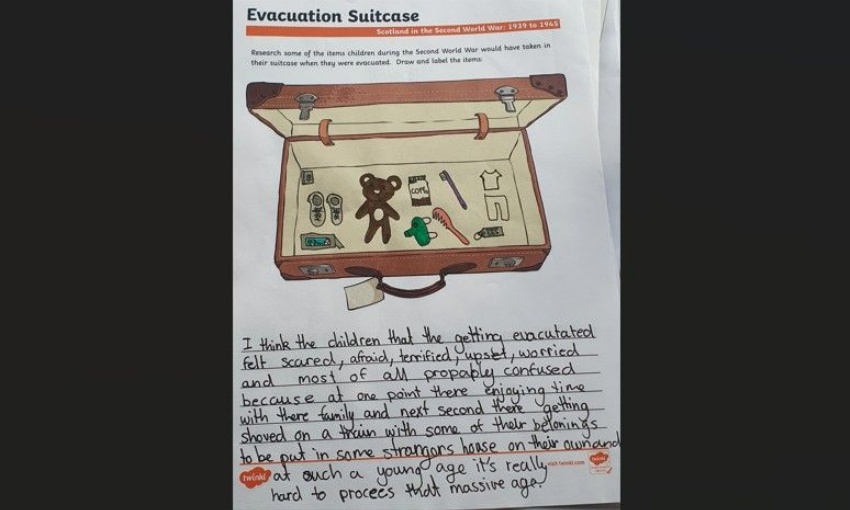 Evacuation Suitcase
Scotland in the Second World War: 1939 to 1945
Research some of the items children during the Second World War would have taken in
their suitcase when they were evacuated. Draw and label the items.
I think the children that the getting evacutated
felt scared, afraid, terrified, upset, worried
and most of all propably confused
because at one point there enjoying time
with there family and next second there getting
shoved on a train with some of their belonings
to be put in some strangors house on their own and
at such a young age it's really
hard to procees that massive age.
twinkl
visit twinkl.com